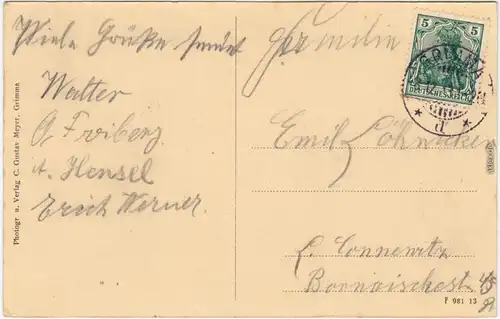 Viele Grüße sendet
Walter
A. Freiberg
A. Hensel
Erich Werner.
Familie
Emil Löhnicker
L. Connewitz
Bornaischestr. 45
Photogr u. Verlag C. Gustav Meyer, Grimma
5 5
DEUTSCHES REICH
GRIMMA
* d *
F 981 13